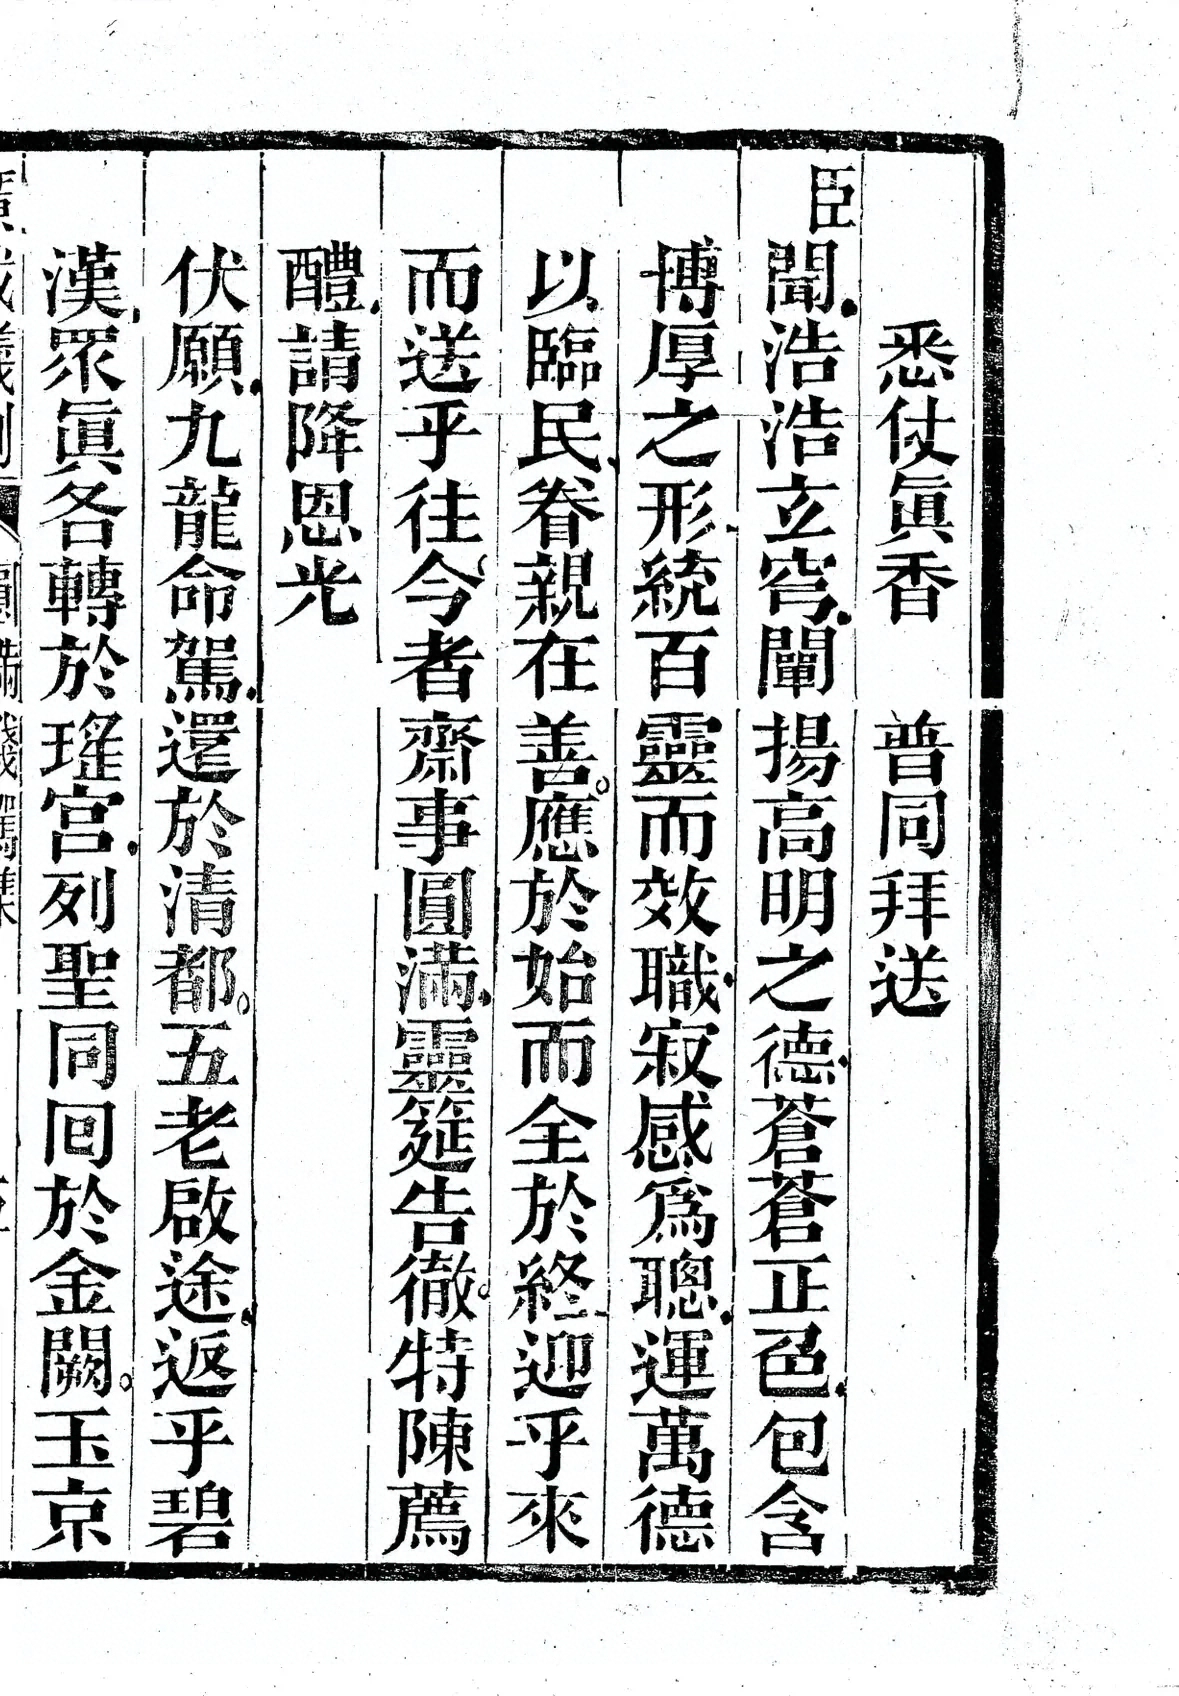 悉仗眞香　普同拜送
臣聞浩浩玄穹闡揚高明之德蒼蒼正色包含
博厚之形統百靈而效職寂感爲聰運萬德
以臨民眷親在善應於始而全於終迎乎來
而送乎往今者齋事圓滿靈筵告徹特陳薦
醴請降恩光
伏願九龍命駕還於清都五老啟途返乎碧
漢眾眞各轉於瑤宮列聖同回於金闕玉京